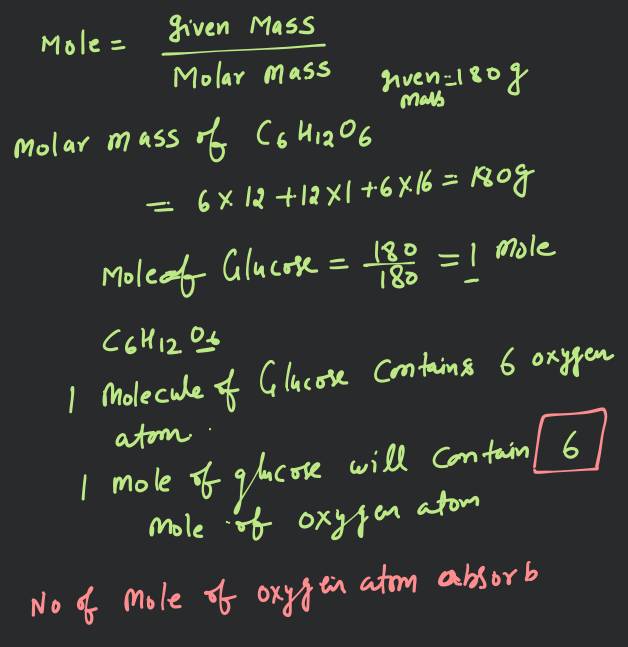 Mole = Given Mass / Molar Mass
given mass = 180 g
Molar mass of C6H12O6
= 6 x 12 + 12 x 1 + 6 x 16 = 180g
Mole of Glucose = 180/180 = 1 Mole
C6H12O6
1 Molecule of Glucose Contains 6 oxygen
atom.
1 mole of glucose will Contain 6
Mole of oxygen atom
No of Mole of oxygen atom absorb